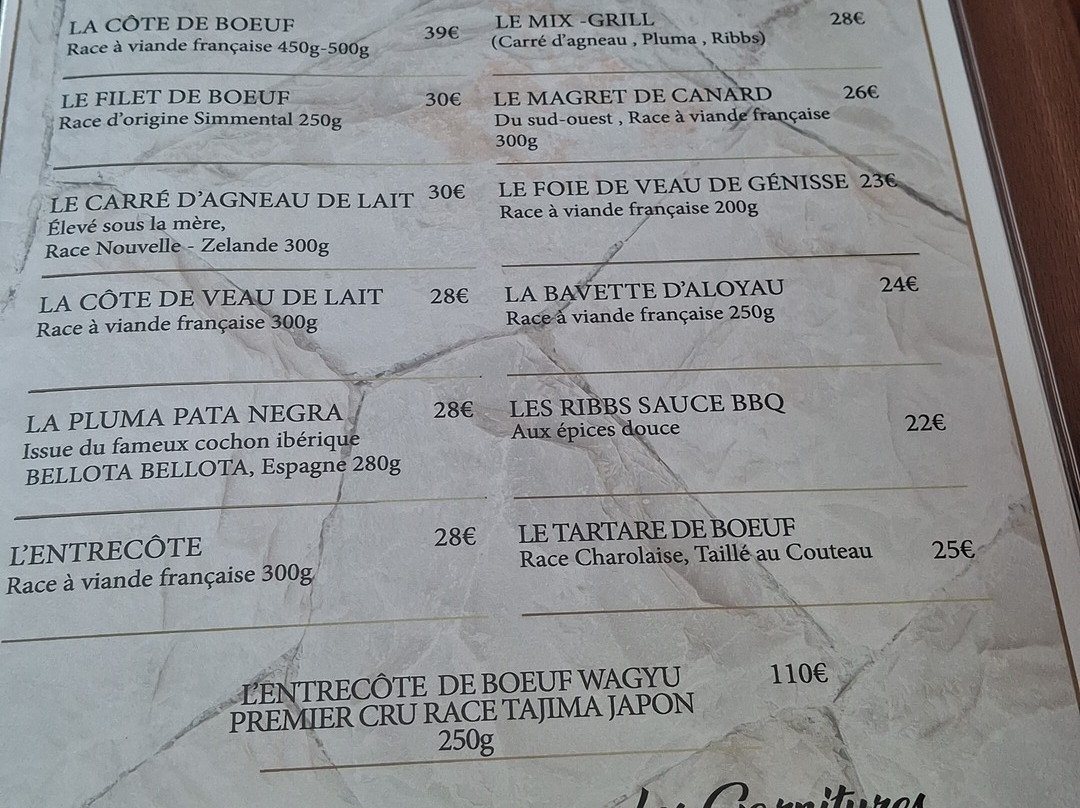 LA CÔTE DE BOEUF 39€
Race à viande française 450g-500g
LE FILET DE BOEUF 30€
Race d'origine Simmental 250g
LE CARRÉ D'AGNEAU DE LAIT 30€
Élevé sous la mère,
Race Nouvelle - Zelande 300g
LA CÔTE DE VEAU DE LAIT 28€
Race à viande française 300g
LA PLUMA PATA NEGRA 28€
Issue du fameux cochon ibérique
BELLOTA BELLOTA, Espagne 280g
L'ENTRECÔTE 28€
Race à viande française 300g
LE MIX -GRILL 28€
(Carré d'agneau , Pluma , Ribbs)
LE MAGRET DE CANARD 26€
Du sud-ouest , Race à viande française
300g
LE FOIE DE VEAU DE GÉNISSE 23€
Race à viande française 200g
LA BAVETTE D'ALOYAU 24€
Race à viande française 250g
LES RIBBS SAUCE BBQ 22€
Aux épices douce
LE TARTARE DE BOEUF
Race Charolaise, Taillé au Couteau 25€
L'ENTRECÔTE DE BOEUF WAGYU 110€
PREMIER CRU RACE TAJIMA JAPON
250g
Les Garnitures